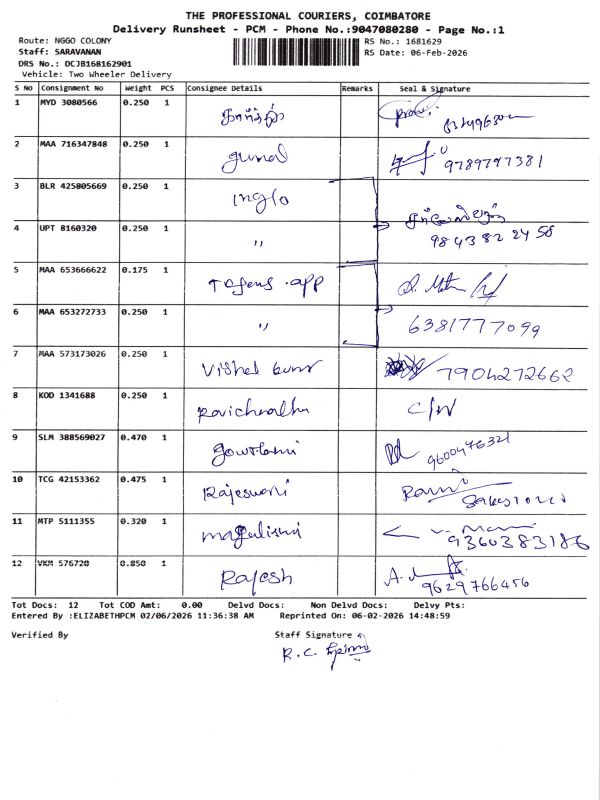 THE PROFESSIONAL COURIERS, COIMBATORE
Delivery Runsheet - PCM - Phone No.:9047080280 - Page No.:1
Route: NGGO COLONY RS No.: 1681629
Staff: SARAVANAN RS Date: 06-Feb-2026
DRS No.: DCJB168162901
Vehicle: Two Wheeler Delivery
S No Consignment No Weight PCS Consignee Details Remarks Seal & Signature
1 MYD 3080566 0.250 1
2 MAA 716347848 0.250 1 gunal 9789797381
3 BLR 425805669 0.250 1 Inglo
4 UPT 8160320 0.250 1 " 98 43 82 24 58
5 MAA 653666622 0.175 1 app
6 MAA 653272733 0.250 1 " 6381777099
7 MAA 573173026 0.250 1 Vishal 7904272662
8 KOD 1341688 0.250 1 c/w
9 SLM 388569027 0.470 1 gowthami
10 TCG 42153362 0.475 1 Rajeswari
11 MTP 5111355 0.320 1 9360383186
12 VKM 576720 0.850 1 Rajesh 9629766456
Tot Docs: 12 Tot COD Amt: 0.00 Delvd Docs: Non Delvd Docs: Delvy Pts:
Entered By :ELIZABETHPCM 02/06/2026 11:36:38 AM Reprinted On: 06-02-2026 14:48:59
Verified By Staff Signature
R. C.